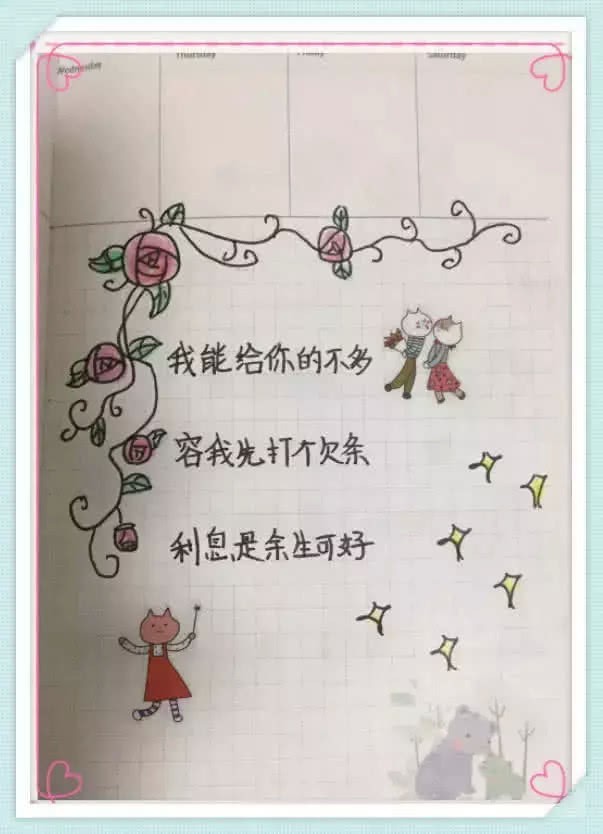 Wednesday
Thursday
Friday
Saturday
我能给你的不多
容我先打个欠条
利息是余生可好